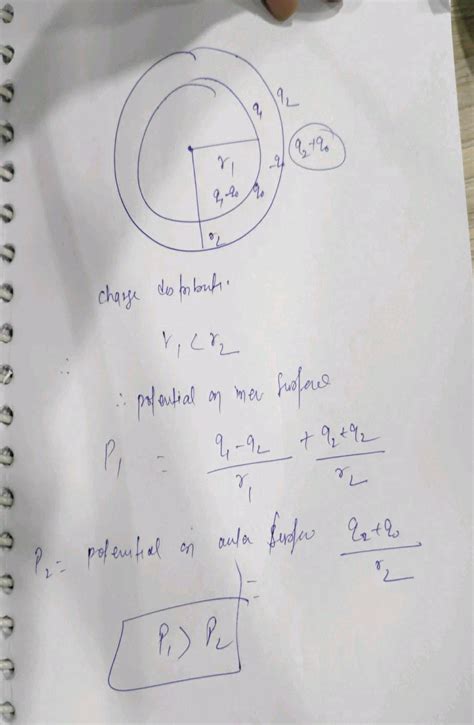 q₁ q₂
r₁ -q₀ (q₂+q₀)
q₁-q₀ q₀
r₂
charge distributi.
∴ r₁ < r₂
∴ potential on inner surface
P₁ = (q₁-q₂)/r₁ + (q₂+q₂)/r₂
P₂ = potential on outer surface (q₂+q₀)/r₂
=
P₁ > P₂